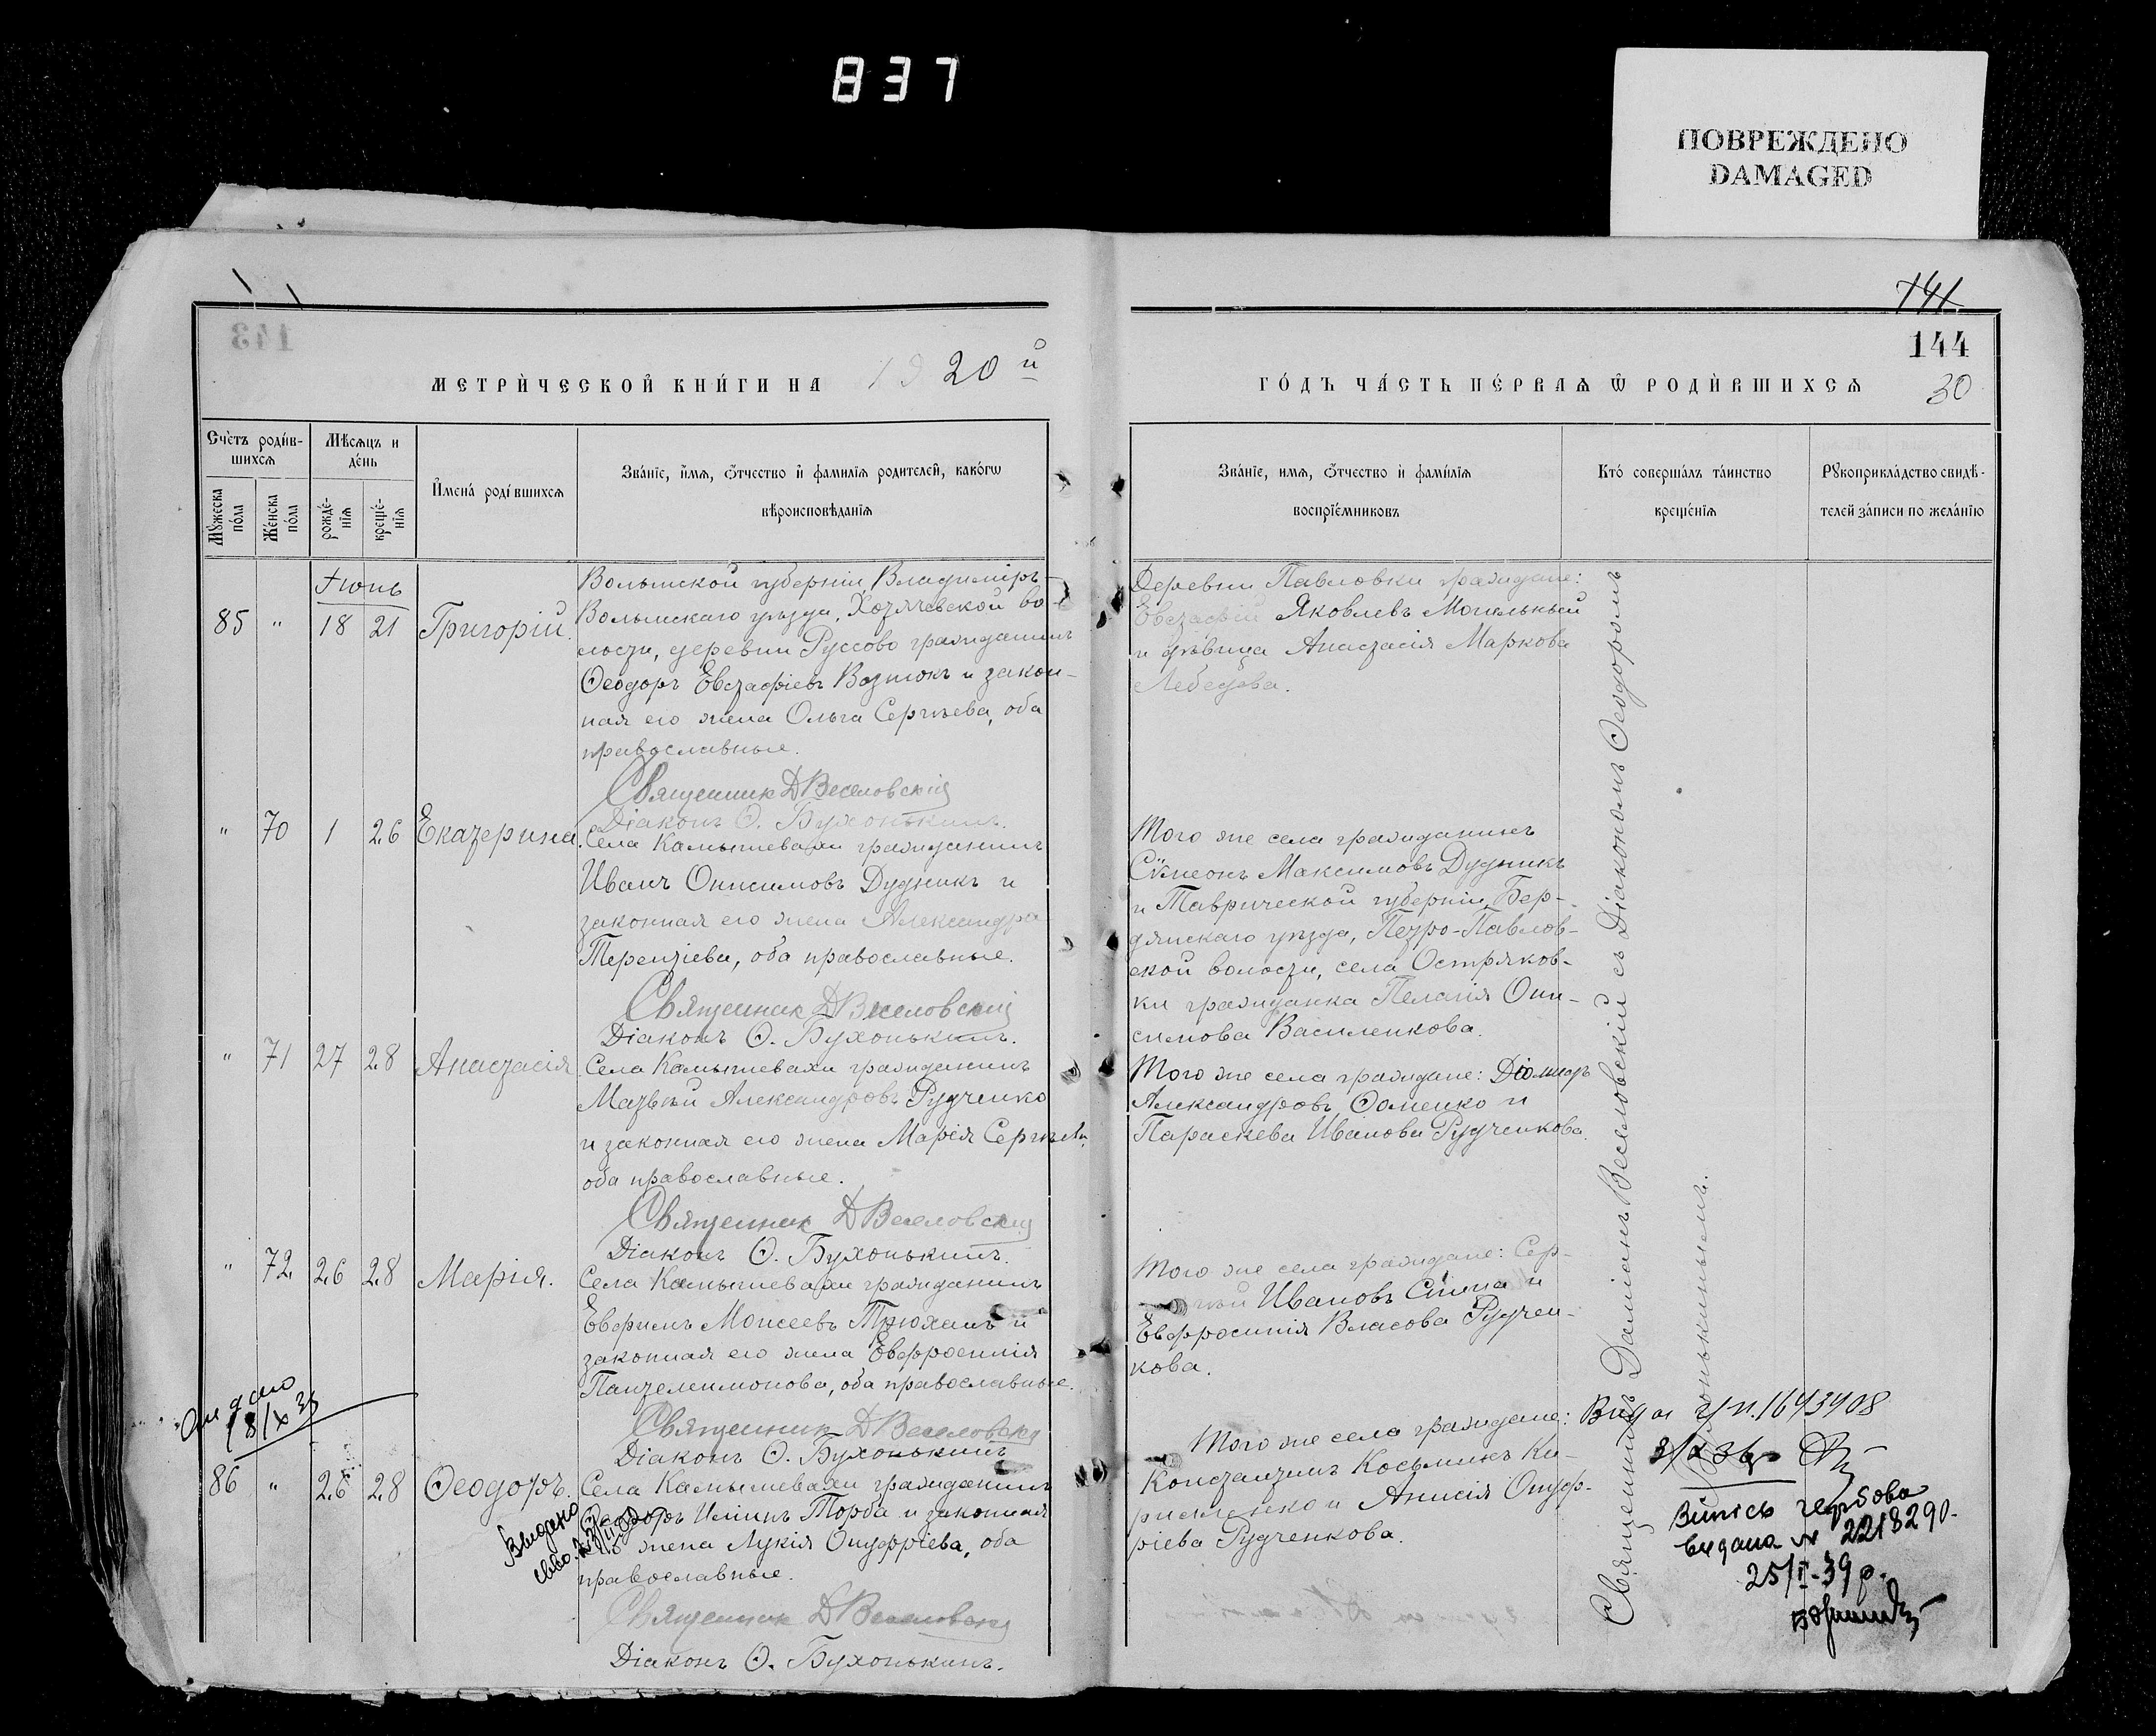 837
ПОВРЕЖДЕНО
DAMAGED
141
143
144
30
МЕТРИ́ЧЕСКОЙ КНИ́ГИ НА 1920й
ГО́ДЪ ЧА́СТЬ ПЕ́РВАѦ Ѿ РОДИ́ВШИХСѦ
Счётъ роди́в-
шихсѧ
Мѣ́сѧцъ и
де́нь
Мꙋ́жеска
по́ла
Же́нска
по́ла
рожде́-
нїѧ
креще́-
нїѧ
И҆мена́ роди́вшихсѧ
Зва́нїе, и҆́мѧ, ѻ҆́тчество и҆ фами́лїѧ роди́телей, како́гѡ
вѣроисповѣ́данїѧ
Зва́нїе, имѧ, ѻ҆́тчество и҆ фами́лїѧ
воспрїе́мниковъ
Кто́ соверша́лъ та́инство
креще́нїѧ
Рꙋкоприкла́дство свидѣ́-
телей за́писи по жела́нїю
Іюнь
85 " 18 21 Григорій.
Волынской губерніи, Владиміръ-
Волынскаго уѣзда, Хотячевской во-
лости, деревни Руссово гражданинъ
Ѳеодоръ Евстафіевъ Возниюкъ и закон-
ная его жена Ольга Сергѣева, оба
православные.
Священник Д Веселовскій
Діаконъ Ѳ. Бухонькинъ.
Деревни Павловки граждане:
Евстафій Яковлевъ Могильный
и дѣвица Анастасія Маркова
Лебедева.
" 70 1 26 Екатерина.
Села Камышевахи гражданинъ
Иванъ Онисимовъ Дудникъ и
законная его жена Александра
Терентіева, оба православные.
Священник Д Веселовскій
Діаконъ Ѳ. Бухонькинъ.
Того же села гражданинъ
Сѵмеонъ Максимовъ Дудникъ
и Таврической губерніи, Бер-
дянскаго уѣзда, Петро-Павлов-
ской волости, села Остряков-
ки гражданка Пелагія Они-
симова Василенкова.
" 71 27 28 Анастасія.
Села Камышевахи гражданинъ
Матвѣй Александровъ Рудченко
и законная его жена Марія Сергѣева,
оба православные.
Священник Д Веселовскій
Діаконъ Ѳ. Бухонькинъ.
Того же села граждане: Діомидъ
Александровъ Ѳоменко и
Параскева Иванова Рудченкова.
" 72 26 28 Марія.
Села Камышевахи гражданинъ
Евфимъ Моисеевъ Трюханъ и
законная его жена Евфросинія
Пантелеимонова, оба православные.
Священник Д Веселовскій
Діаконъ Ѳ. Бухонькинъ
Того же села граждане: Сер-
гѣй Ивановъ и
Евфросинія Власова Рудчен-
кова.
86 " 26 28 Ѳеодоръ.
Села Камышевахи гражданинъ
Ѳеодоръ Иліинъ Торба и законная
его жена Лукія Онуфріева, оба
православные.
Священник Д Веселовскій
Діаконъ Ѳ. Бухонькинъ.
Того же села граждане:
Константинъ Косьминъ Ки-
риленко и Анисія Онуф-
ріева Рудченкова.
Священникъ Даміанъ Веселовскій съ Діакономъ Ѳеодоромъ
Бухонькинымъ.
18/X 35
Выдано
1643908
Випись гербова
видана № 2218290.
25/I-39 р.